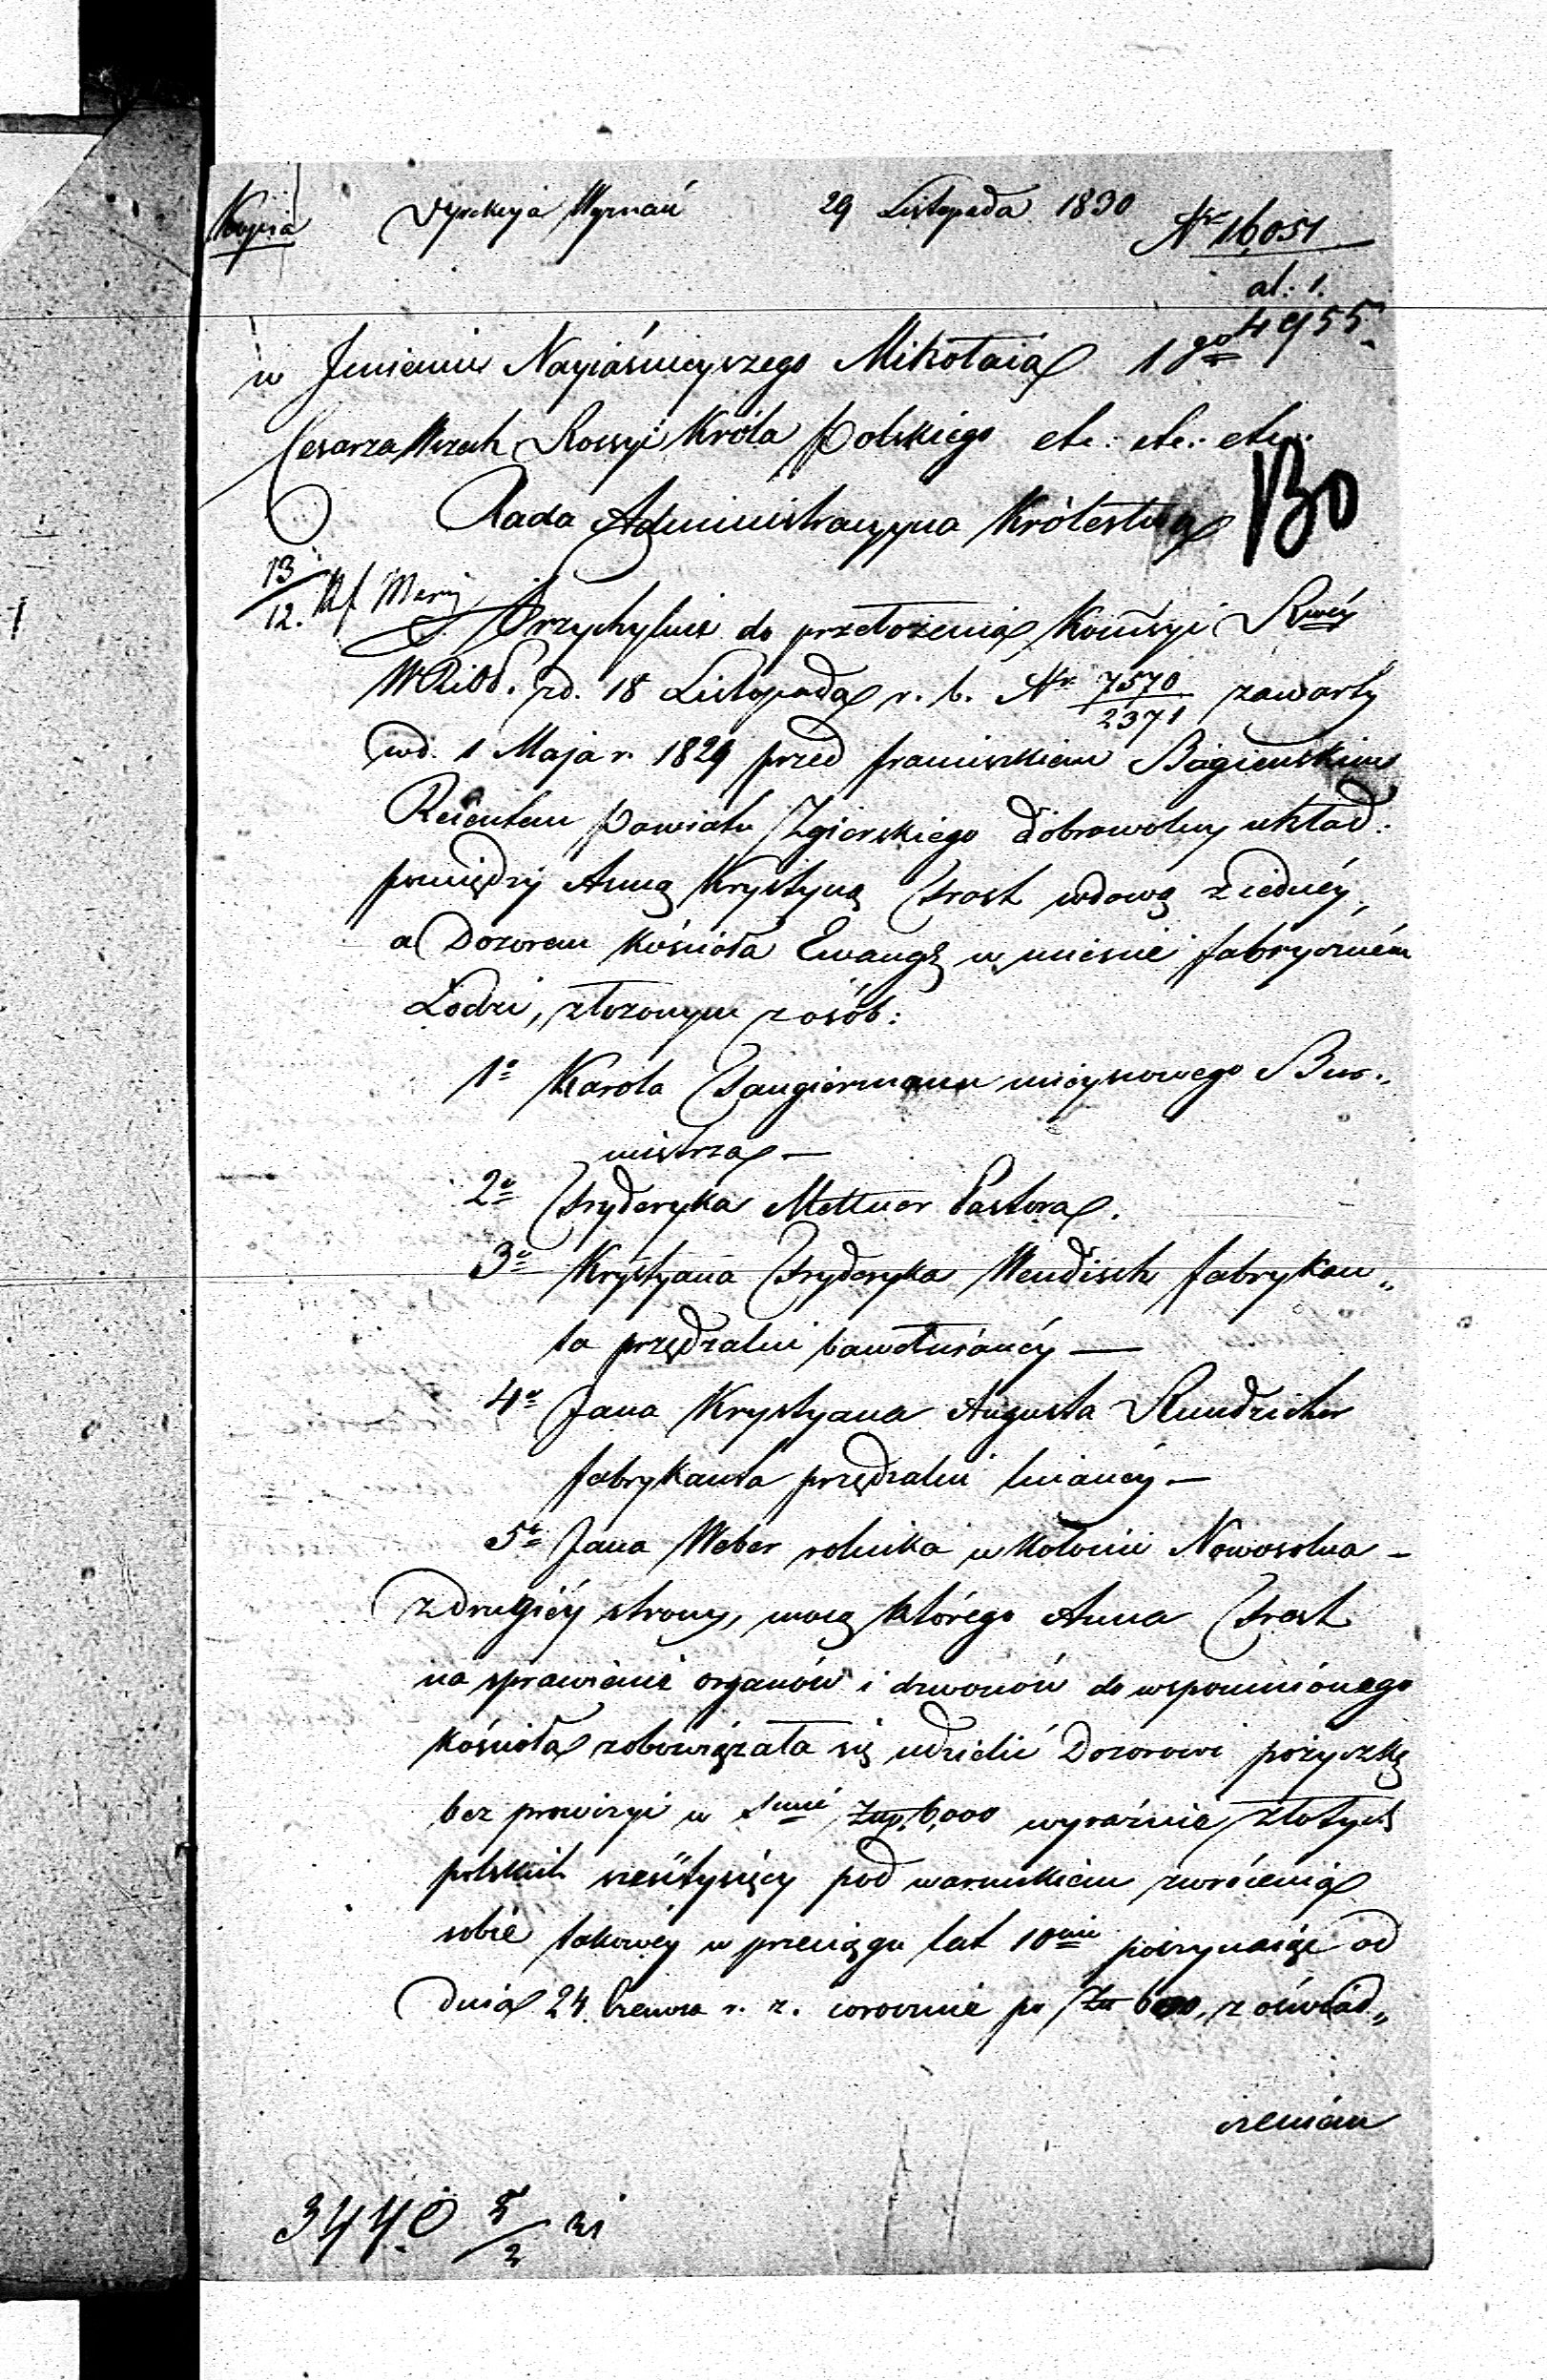 Kopia Dyrekcya Wyznań 29 Listopada 1830 Nr 16,051
al: 1.
4955.
w Jmieniu Nayiaśnieyszego Mikołaia 1go
Cesarza Wszech Rossyi Króla Polskiego etc: etc: etc:
130
Rada Administracyyna Królestwa
13/12.
Przychylnie do przełożenia Kommissyi Rwéy
WRiOP. zd. 18 Listopada r. b. Nr 7570/2371 zawarty
wd. 1 Maja r. 1829 przed franciszkiem Bagieńskim
Reientem Powiatu Zgierskiego dobrowolny układ:
pomiędzy Anną Krystyną Frost wdową z iednéy,
a Dozorem Kościoła Ewang w mieście fabryczném
Łodzi, złożonym z osób:
1o Karola Tangiermann mieyscowego Bur„
mistrza —
2o Fryderyka Mettner Pastora.
3o Krystyana Fryderyka Wendisch fabrykan„
ta przędzalni bawełnianéy —
4o Jana Krystyana Augusta Rundzieher
fabrykanta przędzalni lnianéy —
5o Jana Weber rolnika w kolonii Nowosolna —
z drugiéy strony, mocą którego Anna Frost
na sprawienie organów i dzwonów do wspomnionego
kościoła zobowiązała się udzielić Dozorowi pożyczkę
bez prowizyi w Smie Złp. 6,000 wyraźnie złotych
polskich sześćtysięcy pod warunkiem zwrócenia
sobie takowéy w przeciągu lat 10ciu poczynaiąc od
dnia 24 Czerwca r. z. corocznie po Zł 600, z oświad„
czeniem
3440 5/2 31